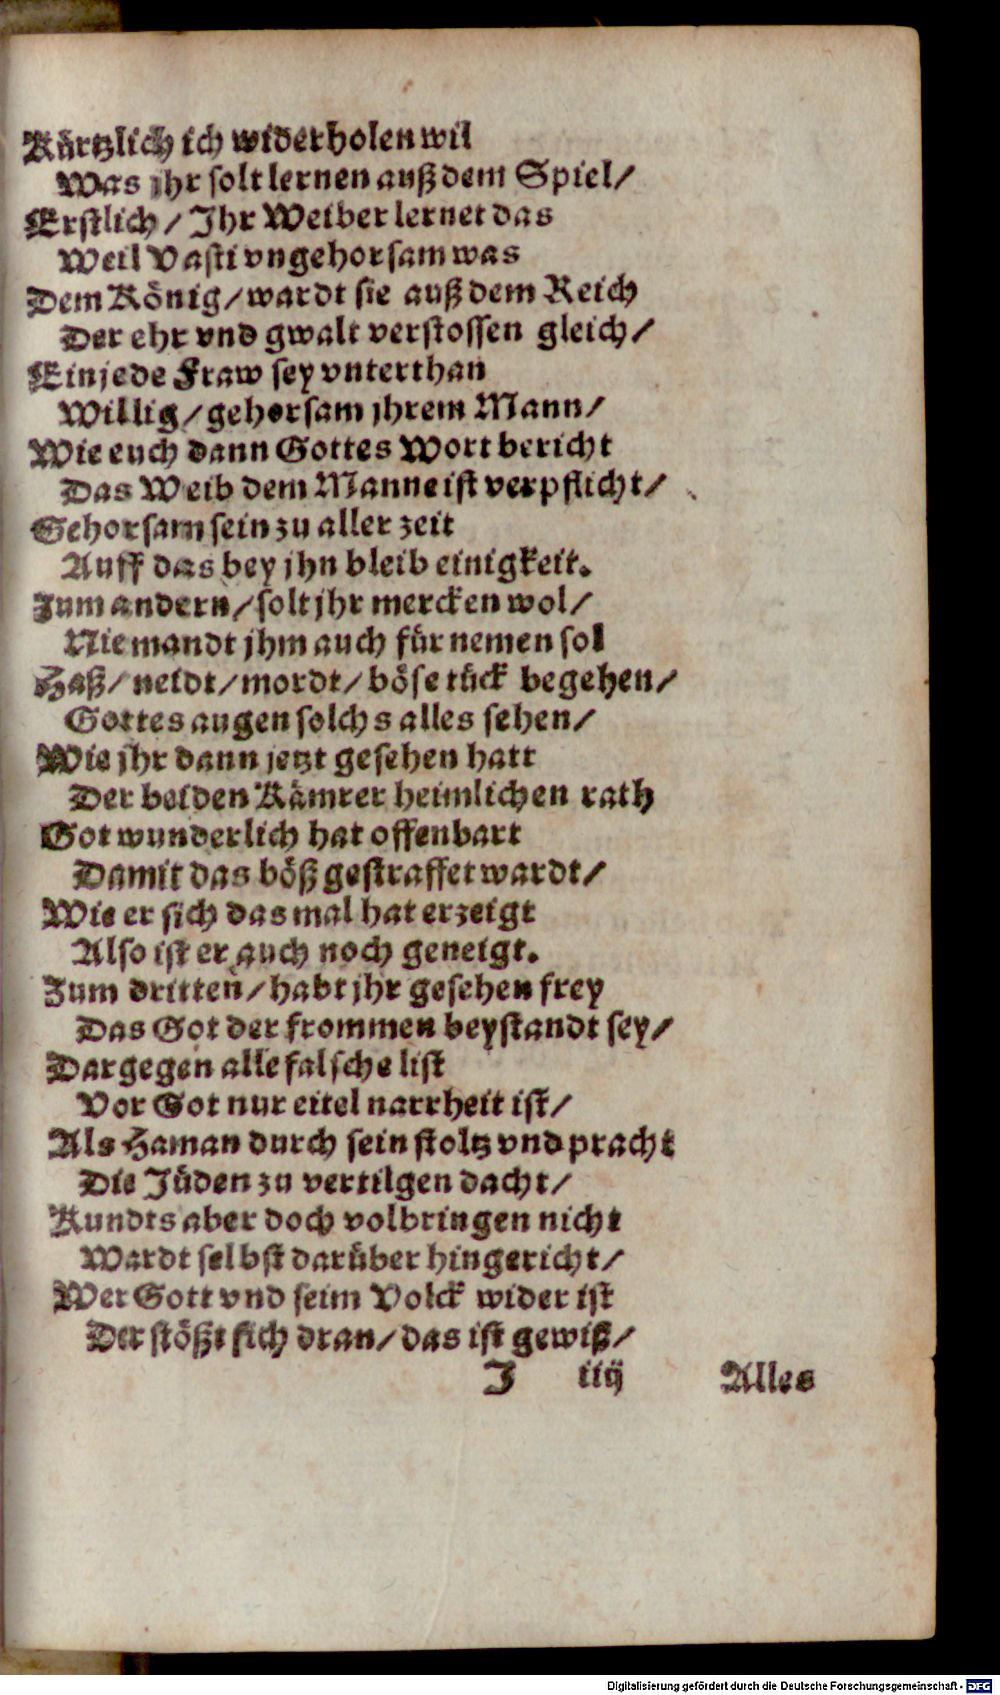 Kürtzlich ich widerholen wil
Was jhr solt lernen auß dem Spiel/
Erstlich/ Ihr Weiber lernet das
Weil Vasti vngehorsam was
Dem König/ wardt sie auß dem Reich
Der ehr vnd gwalt verstossen gleich/
Ein jede Fraw sey vnterthan
Willig/ gehorsam jhrem Mann/
Wie euch dann Gottes Wort bericht
Das Weib dem Manne ist verpflicht/
Gehorsam sein zu aller zeit
Auff das bey jhn bleib einigkeit.
Zum andern/ solt jhr mercken wol/
Niemandt jhm auch für nemen sol
Haß/ neidt/ mordt/ böse tück begehen/
Gottes augen solchs alles sehen/
Wie jhr dann jetzt gesehen hatt
Der beiden Kämrer heimlichen rath
Got wunderlich hat offenbart
Damit das böß gestraffet wardt/
Wie er sich das mal hat erzeigt
Also ist er auch noch geneigt.
Zum dritten/ habt jhr gesehen frey
Das Got der frommen beystandt sey/
Dargegen alle falsche list
Vor Got nur eitel narrheit ist/
Als Haman durch sein stoltz vnd pracht
Die Jüden zu vertilgen dacht/
Kundts aber doch volbringen nicht
Wardt selbst darüber hingericht/
Wer Gott vnd seim Volck wider ist
Der stößt sich dran/ das ist gewiß/
J iiij Alles
Digitalisierung gefördert durch die Deutsche Forschungsgemeinschaft - DFG